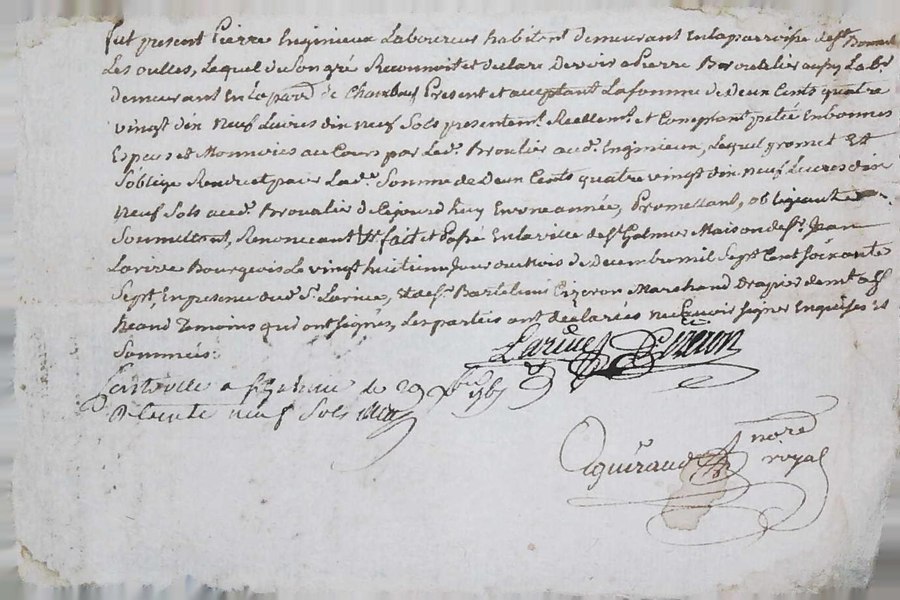 fut present Pierre Enginieux Laboureur habitent demeurant En la parroisse de st Bonnet
Les oulles, Lequel de Son gré Reconnoit et declare Devoir a Pierre Brouelier aussy Lab.r
demeurant En la par.e de Chambeuf Present et acceptant La somme de deux Cents quatre
vingt dix neuf Livres dix neuf Sols presentem.t Reellem.t et Comptant pretée En bonnes
Especes et Monnoies au Cours par Led. Broulier aud. Enginieux, Lequel promet Et
s'oblige Rendre et paier Lad.e Somme de Deux Cents quatre vingt dix neuf Livres dix
neuf Sols aud. Brouelier de Cejourd'huy En une année, Promettant, obligeant
Soumettant, Renonceant &c fait et Passé En la ville de st Galmier Maison de sr Jean
Larive Bourgeois Le vingt huitieme Jour du Mois de Decembre mil Sept Cent soixante
Sept, En presence dud. Sr Larive, Et de sr Bartelemi Cizeron Marchand drapier
Temoins qui ont signés, Les parties ont declarées ne sçavoir signer Enquises Et
Sommées.
Larive Cizeron
Controllé a st Galmier le 29 Xbre 1767
R. trente neuf Sols
guiraud nore
royal